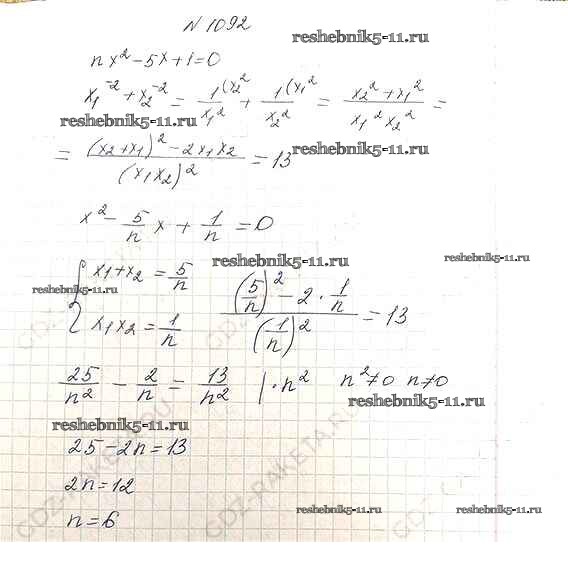 N 1092
reshebnik5-11.ru
nx² - 5x + 1 = 0
x₁⁻² + x₂⁻² = 1^(x₂²/x₁² + 1^(x₁²/x₂² = (x₂² + x₁²)/(x₁² x₂²) =
reshebnik5-11.ru
= ((x₂ + x₁)² - 2x₁x₂)/(x₁x₂)² = 13 reshebnik5-11.ru
x² - 5/n x + 1/n = 0
reshebnik5-11.ru reshebnik5-11.ru
{ x₁ + x₂ = 5/n
reshebnik5-11.ru
x₁x₂ = 1/n ((5/n)² - 2 · 1/n)/(1/n)² = 13
25/n² - 2/n = 13/n² | · n² n² ≠ 0 n ≠ 0
reshebnik5-11.ru
reshebnik5-11.ru
25 - 2n = 13
2n = 12
n = 6
reshebnik5-11.ru reshebnik5-11.ru
GDZ-RAKETA.RU